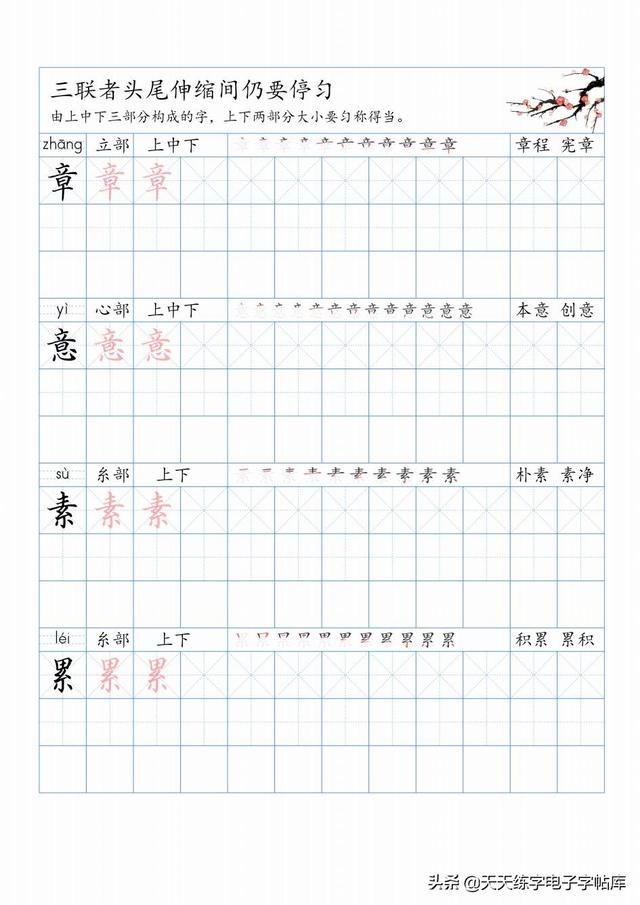 三联者头尾伸缩间仍要停匀
由上中下三部分构成的字，上下两部分大小要匀称得当。
zhāng 立部 上中下 章程 宪章
章 章 章
yì 心部 上中下 本意 创意
意 意 意
sù 糸部 上下 朴素 素净
素 素 素
léi 糸部 上下 积累 累积
累 累 累
头条 @天天练字电子字帖库